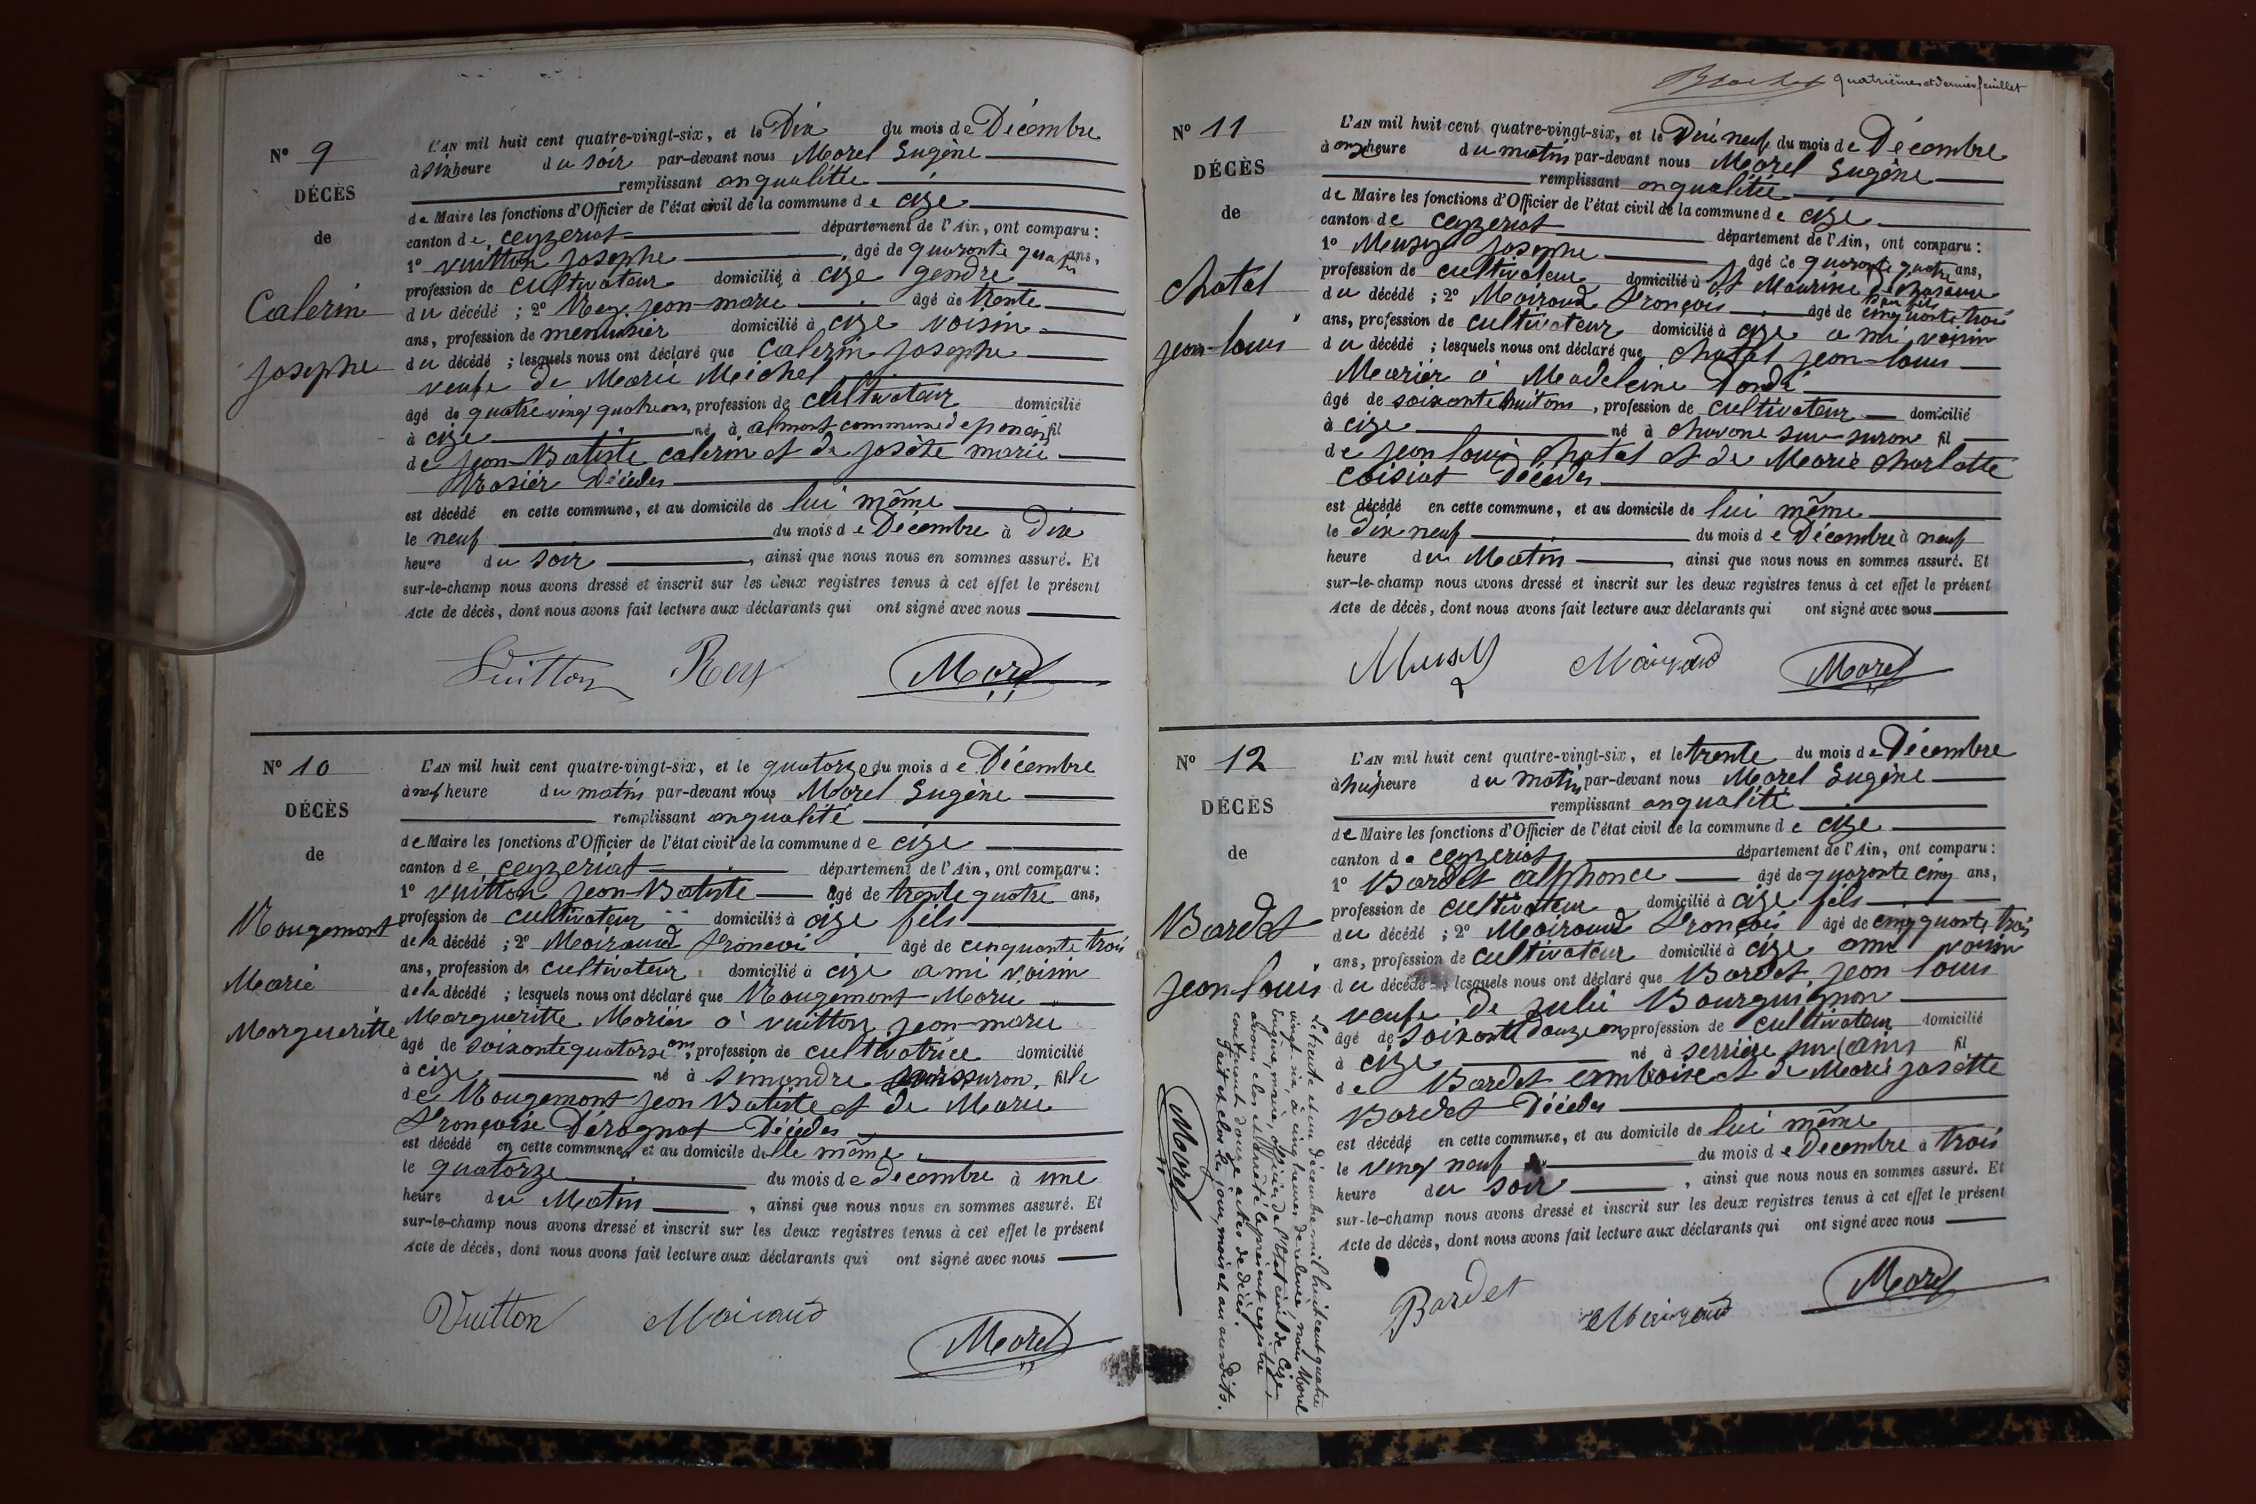 N° 9
DÉCÈS
de
Calerin
Josephe
L'AN mil huit cent quatre-vingt-six, et le Dix du mois de Décembre
à six heure du soir par-devant nous Morel Eugène
remplissant en qualitée
de Maire les fonctions d'Officier de l'état civil de la commune de cize
canton de ceyzeriat département de l'Ain, ont comparu :
1° vuitton Josephe âgé de quaronte quatre ans,
profession de cultivateur domicilié à cize gendre
du décédé ; 2° Rey jean-marie âgé de trente
ans, profession de menuisier domicilié à cize voisin
du décédé ; lesquels nous ont déclaré que Calerin Josephe
veufe de Marie Meichel
âgé de quatre ving quatre ans, profession de cultivateur domicilié
à cize né à almont commune d'eponcin fil
de jean-Batiste calerin et de josète marie
Rosiér Décédes
est décédé en cette commune, et au domicile de lui même
le neuf du mois de Décembre à dix
heure du soir , ainsi que nous nous en sommes assuré. Et
sur-le-champ nous avons dressé et inscrit sur les deux registres tenus à cet effet le présent
Acte de décès, dont nous avons fait lecture aux déclarants qui ont signé avec nous
Vuitton Rey Morel
N° 10
DÉCÈS
de
Rougemont
Marie
Margueritte
L'AN mil huit cent quatre-vingt-six, et le quatorze du mois de Décembre
à neuf heure du matin par-devant nous Morel Eugène
remplissant en qualité
de Maire les fonctions d'Officier de l'état civil de la commune de cize
canton de ceyzeriat département de l'Ain, ont comparu :
1° vuitton jean-Batiste âgé de trente quatre ans,
profession de cultivateur domicilié à cize fils
de la décédé ; 2° Moiraud Francoi âgé de cinquante trois
ans, profession de cultivateur domicilié à cize ami voisin
de la décédé ; lesquels nous ont déclaré que Rougemont Marie
Margueritte Mariér à vuitton jean-marie
âgé de soixante quatorse ans, profession de cultivatrice domicilié
à cize né à simandre sur suron, fille
de Rougemont jean Batiste et de Marie
Françoise Dérognat Décédes
est décédé en cette commune, et au domicile delle même
le quatorze du mois de decembre à une
heure du Matin , ainsi que nous nous en sommes assuré. Et
sur-le-champ nous avons dressé et inscrit sur les deux registres tenus à cet effet le présent
Acte de décès, dont nous avons fait lecture aux déclarants qui ont signé avec nous
Vuitton Moiraud Morel
Brochet quatrième et dernier feuillet
N° 11
DÉCÈS
de
chatal
jean-louis
L'AN mil huit cent quatre-vingt-six, et le Dix neuf du mois de Décembre
à onze heure du matin par-devant nous Morel Eugène
remplissant en qualitée
de Maire les fonctions d'Officier de l'état civil de la commune de cize
canton de ceyzeriat département de l'Ain, ont comparu :
1° Musy Josephe âgé de quaronte quatre ans,
profession de cultivateur domicilié à St Maurice de chasaux
beau fils
du décédé ; 2° Moiraud François âgé de cinquante trois
ans, profession de cultivateur domicilié à cize ami voisin
du décédé ; lesquels nous ont déclaré que chatal jean-louis
Mariér à Madeleine Dondé
âgé de soixante huit ans, profession de cultivateur domicilié
à cize né à chavane sur suron fil
de jean louis chatal et de Marie charlotte
coisiat Décédés
est décédé en cette commune, et au domicile de lui même
le Dix neuf du mois de Décembre à neuf
heure du Matin , ainsi que nous nous en sommes assuré. Et
sur-le-champ nous avons dressé et inscrit sur les deux registres tenus à cet effet le présent
Acte de décès, dont nous avons fait lecture aux déclarants qui ont signé avec nous
Musy Moiraud Morel
N° 12
DÉCÈS
de
Bardet
jean louis
L'AN mil huit cent quatre-vingt-six, et le trente du mois de Décembre
à huit heure du matin par-devant nous Morel Eugène
remplissant en qualité
de Maire les fonctions d'Officier de l'état civil de la commune de cize
canton de ceyzeriat département de l'Ain, ont comparu :
1° Bardet alphonce âgé de quaronte cinq ans,
profession de cultivateur domicilié à cize fils
du décédé ; 2° Moiraud François âgé de cinquante trois
ans, profession de cultivateur domicilié à cize ami voisin
du décédé ; lesquels nous ont déclaré que Bardet jean louis
veufe de julie Bourguignon
âgé de soixante douze ans, profession de cultivateur domicilié
à cize né à serrière sur (ain) fil
de Bardet embroise et de Marie josètte
Bardet Décédes
est décédé en cette commune, et au domicile de lui même
le vingt neuf du mois de Decembre à trois
heure du soir , ainsi que nous nous en sommes assuré. Et
sur-le-champ nous avons dressé et inscrit sur les deux registres tenus à cet effet le présent
Acte de décès, dont nous avons fait lecture aux déclarants qui ont signé avec nous
Bardet Moiraud Morel
Le trente et un décembre mil huit cent quatre
vingt-six à cinq heures de relevée, nous Morel
Eugène, maire, officier de l'état civil de Cize
avons clos et arrêté le présent registre
contenant douze actes de décès.
Fait et clos les jour, mois et an susdits.
Morel